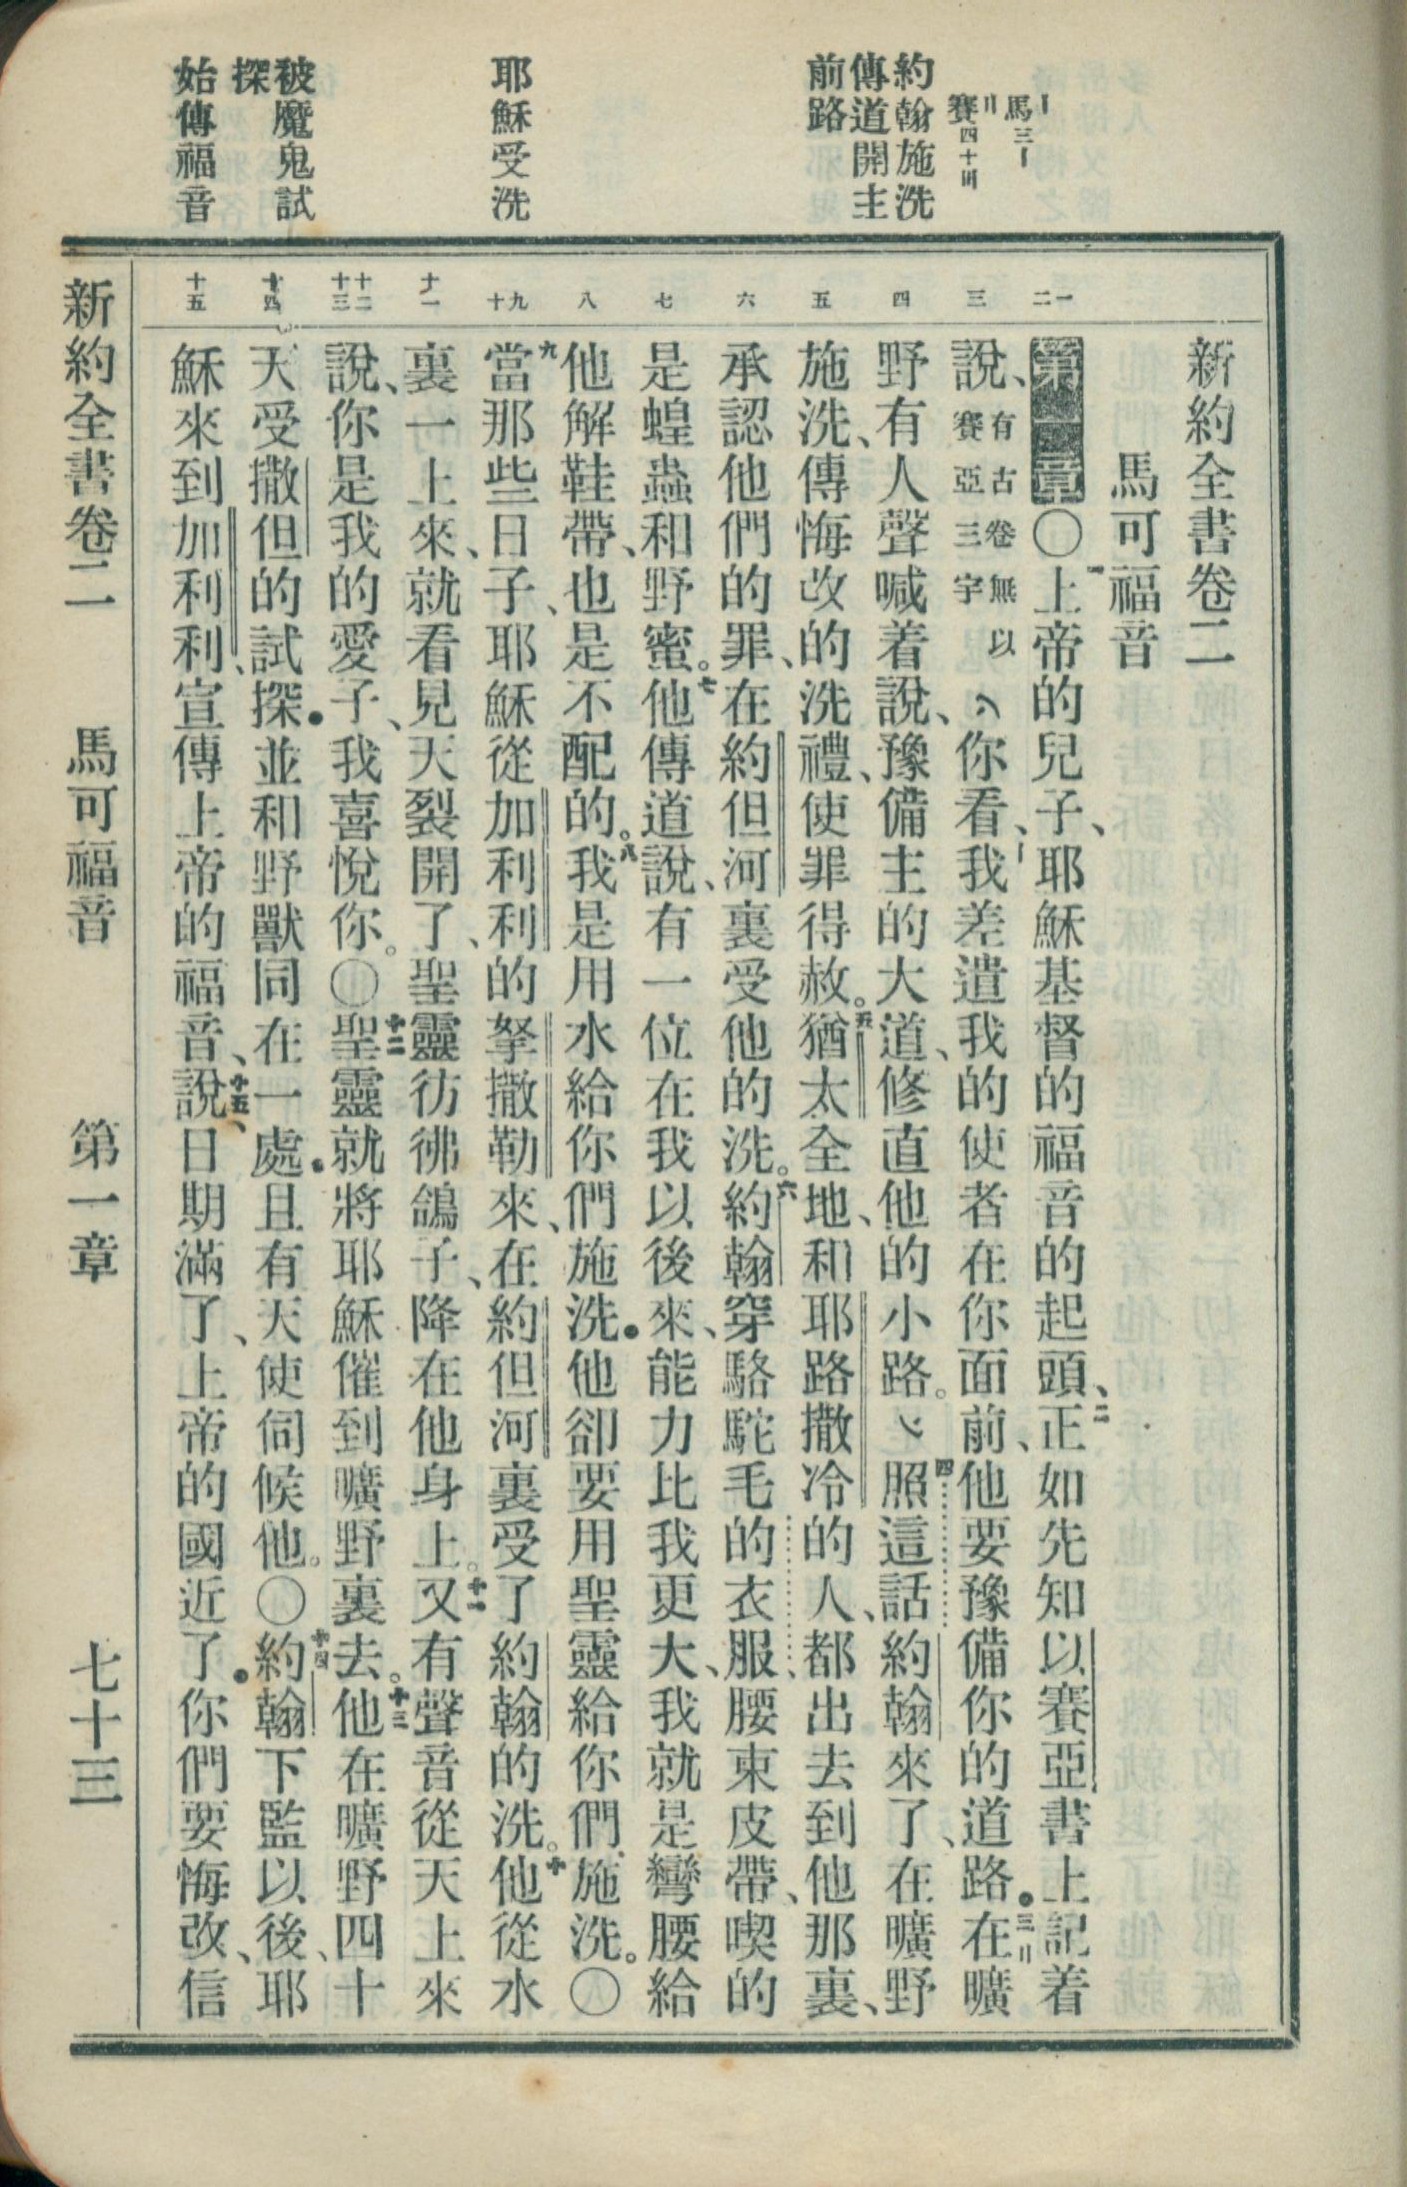 馬三一
賽四十三
約翰施洗
傳道開主
前路
耶穌受洗
被魔鬼試
探
始傳福音
一 二 三 四 五 六 七 八 九 十 十一 十二 十三 十四 十五
新約全書卷二
馬可福音
第一章〇一上帝的兒子、耶穌基督的福音的起頭、二正如先知以賽亞書上記着
說、有古卷無以賽亞三字你看、我差遣我的使者在你面前、他要豫備你的道路.三在曠
野有人聲喊着說、豫備主的大道、修直他的小路。四照這話約翰來了、在曠野
施洗、傳悔改的洗禮、使罪得赦。五猶太全地、和耶路撒冷的人、都出去到他那裏、
承認他們的罪、在約但河裏受他的洗。六約翰穿駱駝毛的衣服、腰束皮帶、喫的
是蝗蟲和野蜜。七他傳道說、有一位在我以後來、能力比我更大、我就是彎腰給
他解鞋帶、也是不配的。八我是用水給你們施洗.他卻要用聖靈給你們施洗。〇
九當那些日子、耶穌從加利利的拏撒勒來、在約但河裏受了約翰的洗。十他從水
裏一上來、就看見天裂開了、聖靈彷彿鴿子、降在他身上。十一又有聲音從天上來
說、你是我的愛子、我喜悅你。〇十二聖靈就將耶穌催到曠野裏去。十三他在曠野四十
天受撒但的試探.並和野獸同在一處.且有天使伺候他。〇十四約翰下監以後、耶
穌來到加利利、宣傳上帝的福音、十五說、日期滿了、上帝的國近了.你們要悔改、信
新約全書卷二 馬可福音 第一章 七十三